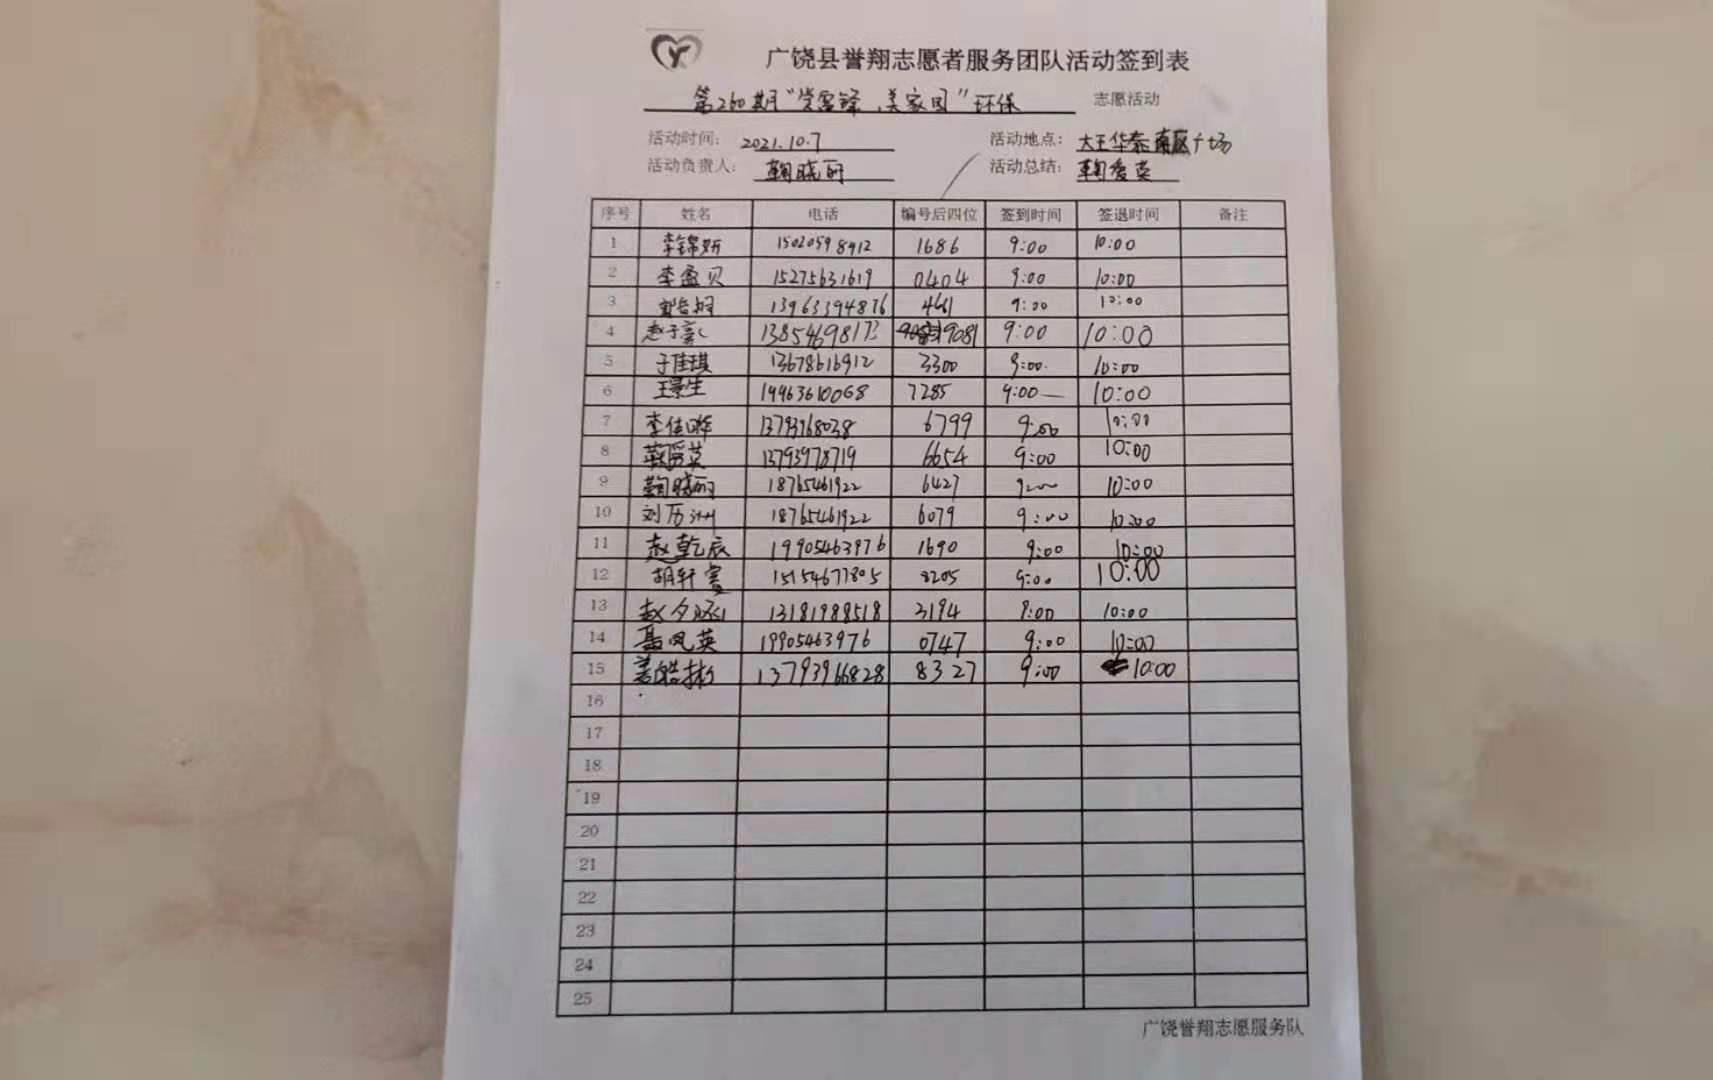 广饶县誉翔志愿者服务团队活动签到表
第260期“学雷锋、美家园”环保 志愿活动
活动时间: 2021.10.7 活动地点: 大王华泰南区广场
活动负责人: 鞠晓丽 活动总结: 鞠爱英
序号 姓名 电话 编号后四位 签到时间 签退时间 备注
1 李锦妍 15020598912 1686 9:00 10:00
2 李盈贝 15275631619 0404 9:00 10:00
3 13963394876 4661 9:00 10:00
4 赵子豪 13854698173 9081 9:00 10:00
5 于佳琪 13678616912 3300 9:00 10:00
6 王景生 19963610068 7285 9:00 10:00
7 李佳晔 13793968038 6799 9:00 10:00
8 鞠爱英 13793978719 6654 9:00 10:00
9 鞠晓丽 18765461922 6427 9:00 10:00
10 刘厉洲 18765461922 6079 9:00 10:00
11 赵乾辰 19905463976 1690 9:00 10:00
12 胡轩赛 15154677805 8205 9:00 10:00
13 赵夕 13181988518 3194 9:00 10:00
14 聂凤英 19905463976 0747 9:00 10:00
15 姜皓彬 13793966828 8327 9:00 10:00
16
17
18
19
20
21
22
23
24
25
广饶誉翔志愿服务队